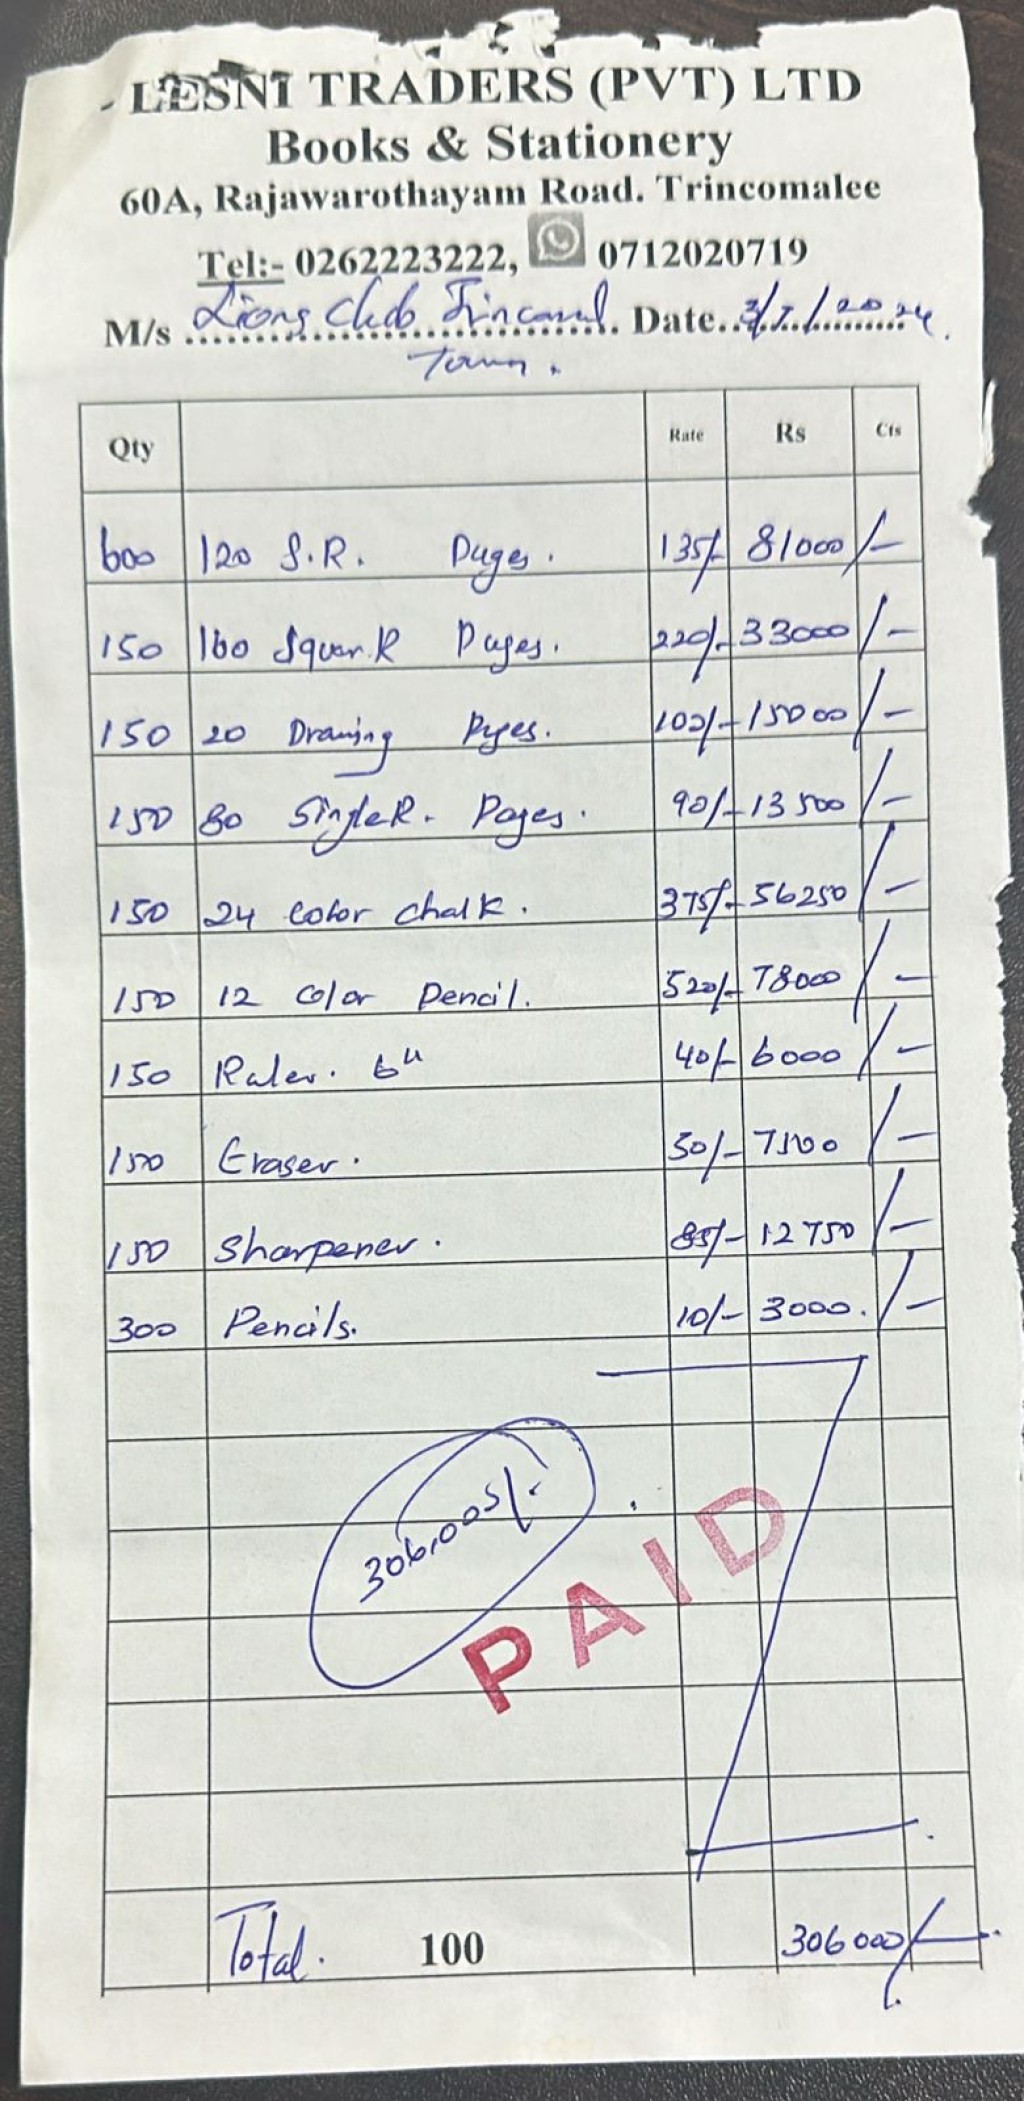 LESNI TRADERS (PVT) LTD
Books & Stationery
60A, Rajawarothayam Road. Trincomalee
Tel:- 0262223222, 0712020719
M/s Lions Club Date. 2024.
Town.
Qty Rate Rs Cts
600 120 S.R. Pages. 135/- 81000 /-
150 160 Squar.R Pages. 220/- 33000 /-
150 20 Drawing Pages. 100/- 15000 /-
150 80 Single R. Pages. 90/- 13500 /-
150 24 Color chalk. 375/- 56250 /-
150 12 Color Pencil. 520/- 78000 /-
150 Ruler. 6" 40/- 6000 /-
150 Eraser. 50/- 7500 /-
150 Sharpener. 85/- 12750 /-
300 Pencils. 10/- 3000. /-
306,005/-
PAID
Total. 100 306000/-